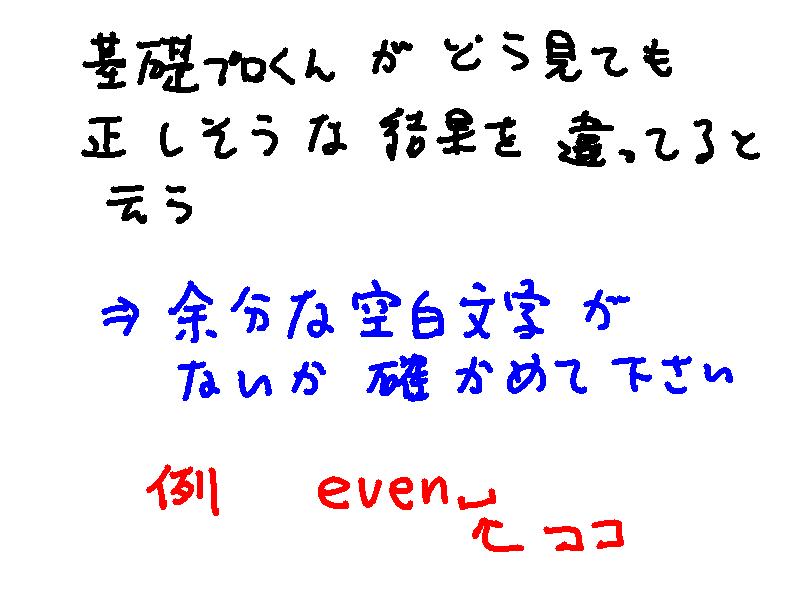 基礎プロくん が どう見ても
正しそうな 結果を 違ってると
云う
⇒ 余分な空白文字 が
ないか 確かめて下さい
例 even␣
ココ